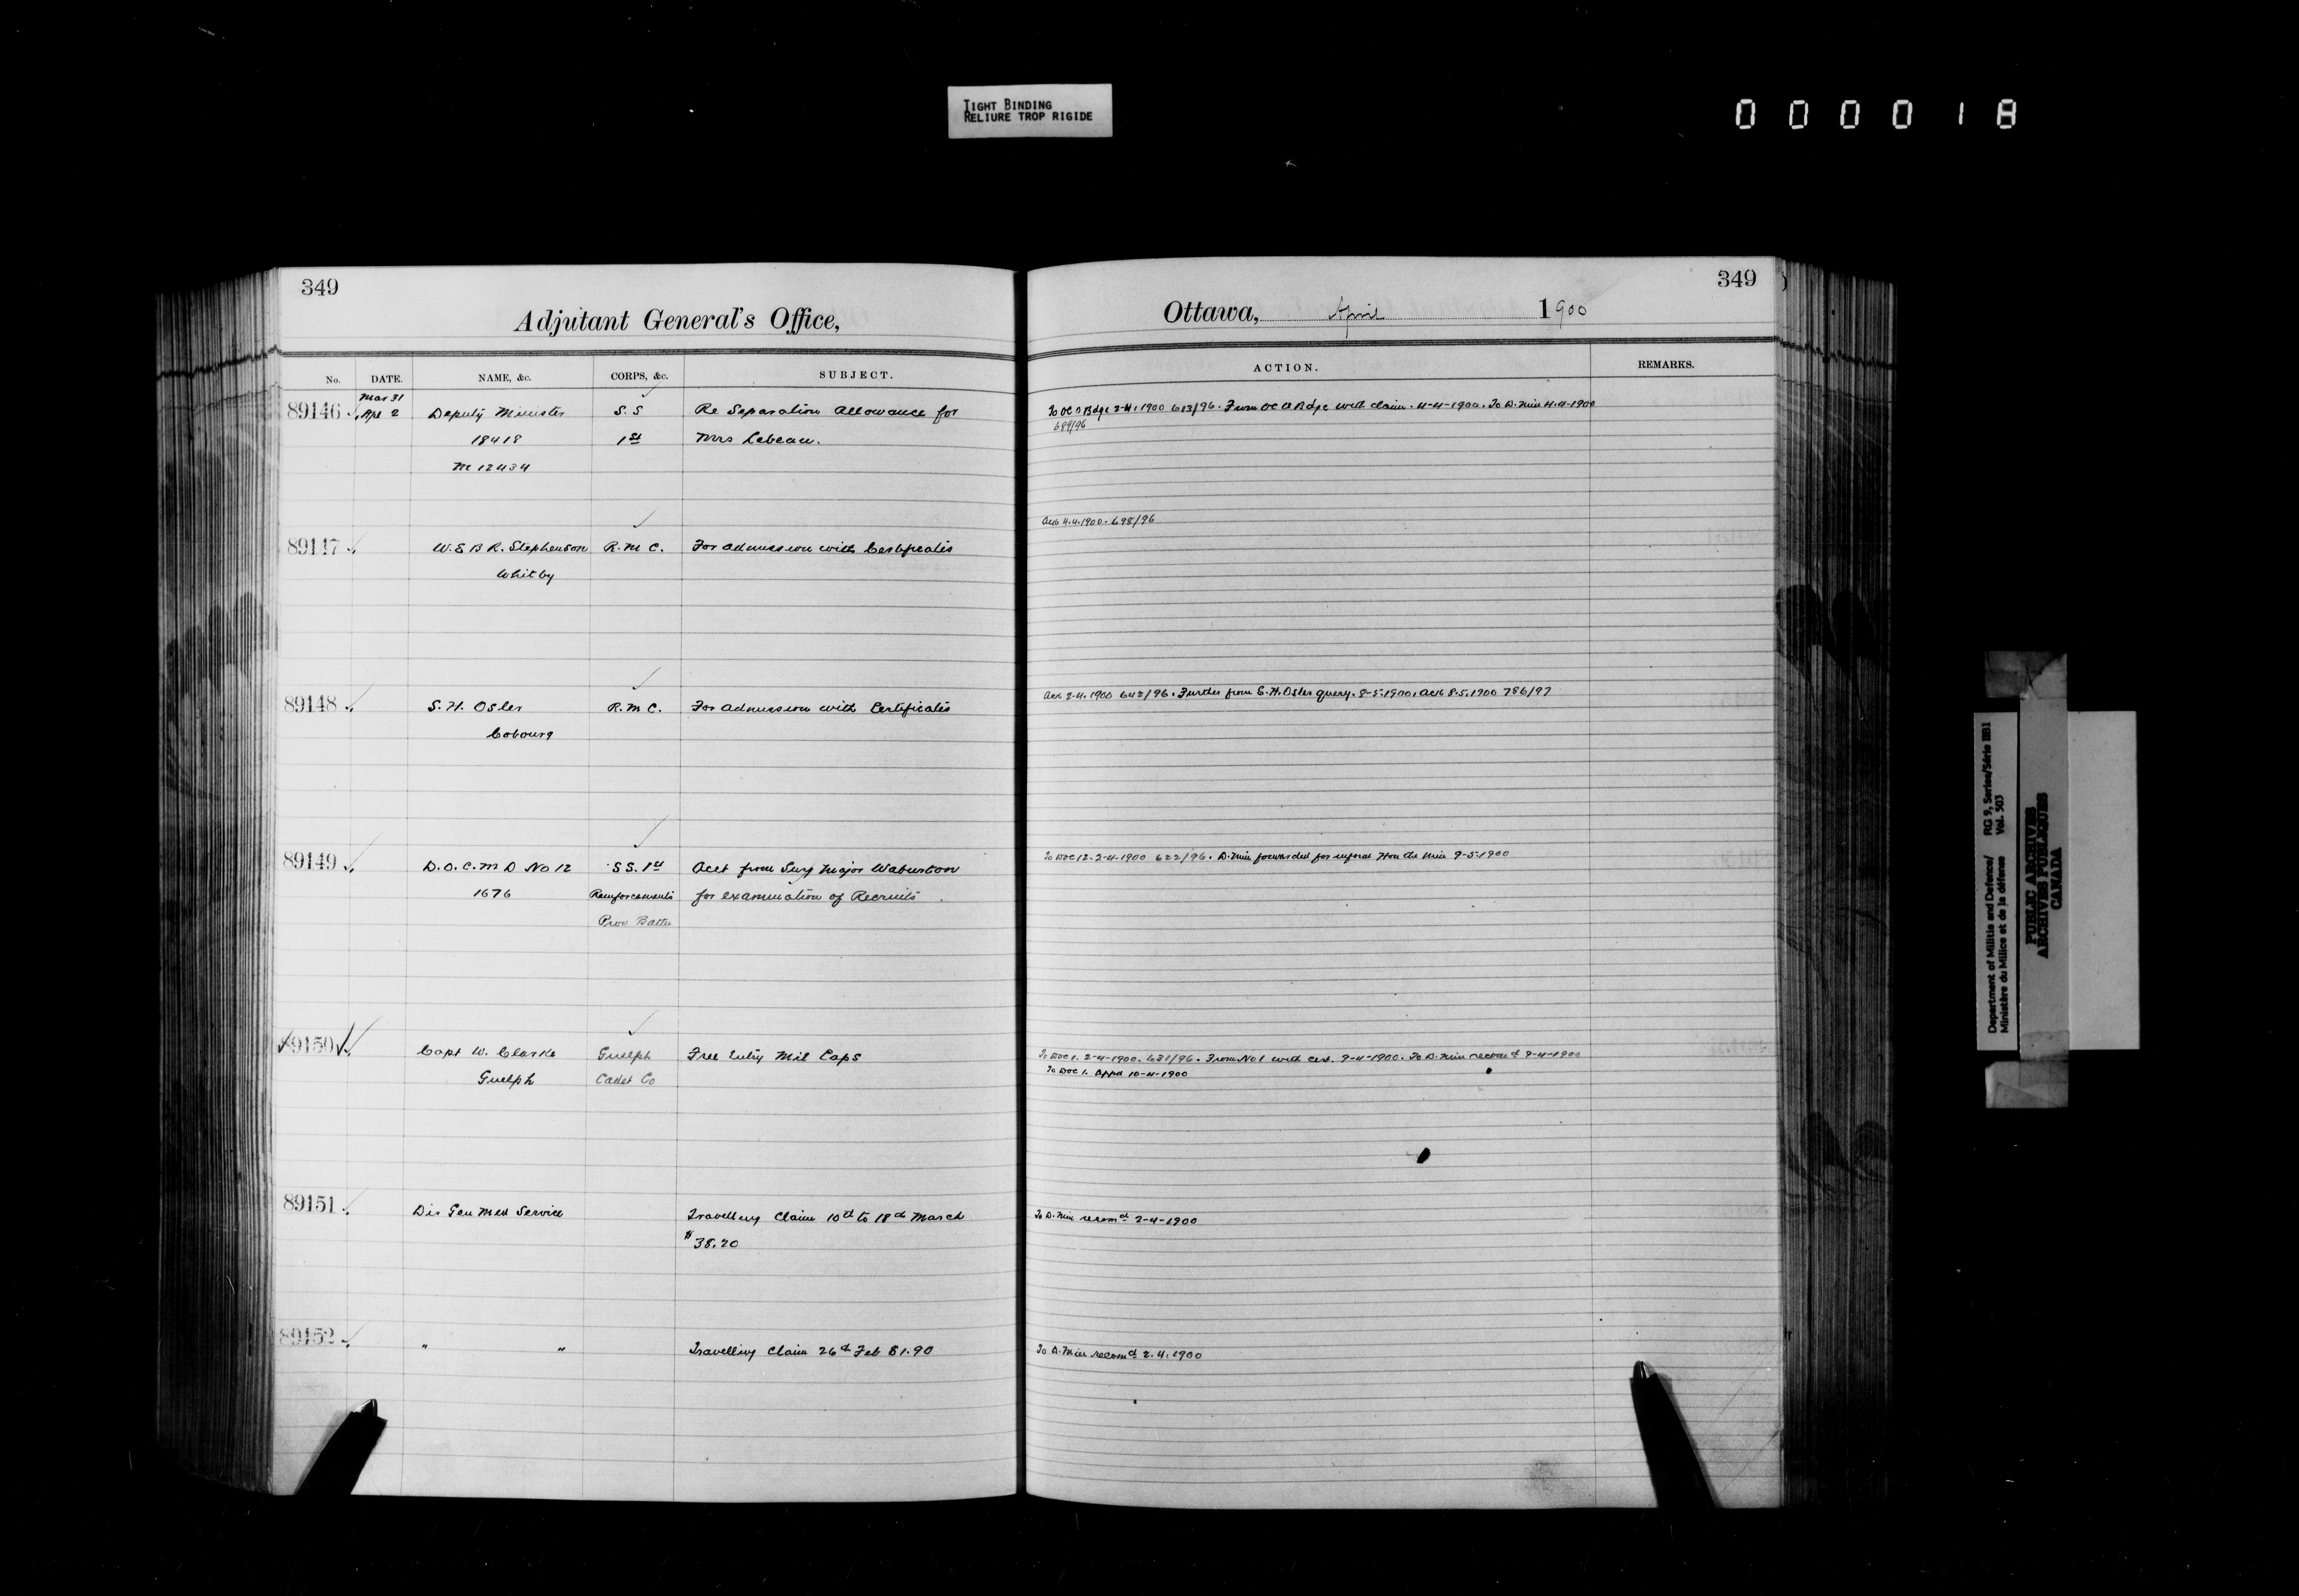 TIGHT BINDING
RELIURE TROP RIGIDE
000018
349
Adjutant General's Office,
No. DATE. NAME, &c. CORPS, &c. SUBJECT.
Mar 31
89146 Apl 2 Deputy Minister S.S Re Separation Allowance for
18418 1st Mrs Lebeau.
M 12434
89147 W.E.B.R. Stephenson R.M.C. For admission with Certificates
Whitby
89148 S.H. Osler R.M.C. For admission with Certificates
Cobourg
89149 D.O.C. M D No 12 SS. 1st Acct from Surg Major
1676 Reinforcements for examination of Recruits
Prov Battn
89150 Capt W. Clarke Guelph Free Entry Mil Caps
Guelph Cadet Co
89151 Dir Gen Med Service Travelling Claim 10th to 18th March
$38.20
89152 " " Travelling Claim 26th Feb $1.90
349
Ottawa, April 1900
ACTION. REMARKS.
To OC Bdge 2-4-1900 613/96. From OC Bdge with claim. 4-4-1900. To D. Min 4-4-1900
689/96
Ack 4.4.1900. 698/96
Ack 2.4.1900 642/96. Further from S.H. Osler query. 8-5-1900. Ack 8.5.1900 786/97
To DOC 12. 2-4-1900 622/96. D. Min forwarded for Hon the Min 9-5-1900
To DOC 1. 2-4-1900. 631/96. From No 1 with Cert. 9-4-1900. To D. Min recomd 9-4-1900
To DOC 1. Appd 10-4-1900
To D. Min recomd 2-4-1900
To D. Min recomd 2.4.1900
Department of Militia and Defence/ RG 9, Series/Série IIB1
Ministère du Milice et de la défence Vol. 503
PUBLIC ARCHIVES
ARCHIVES PUBLIQUES
CANADA